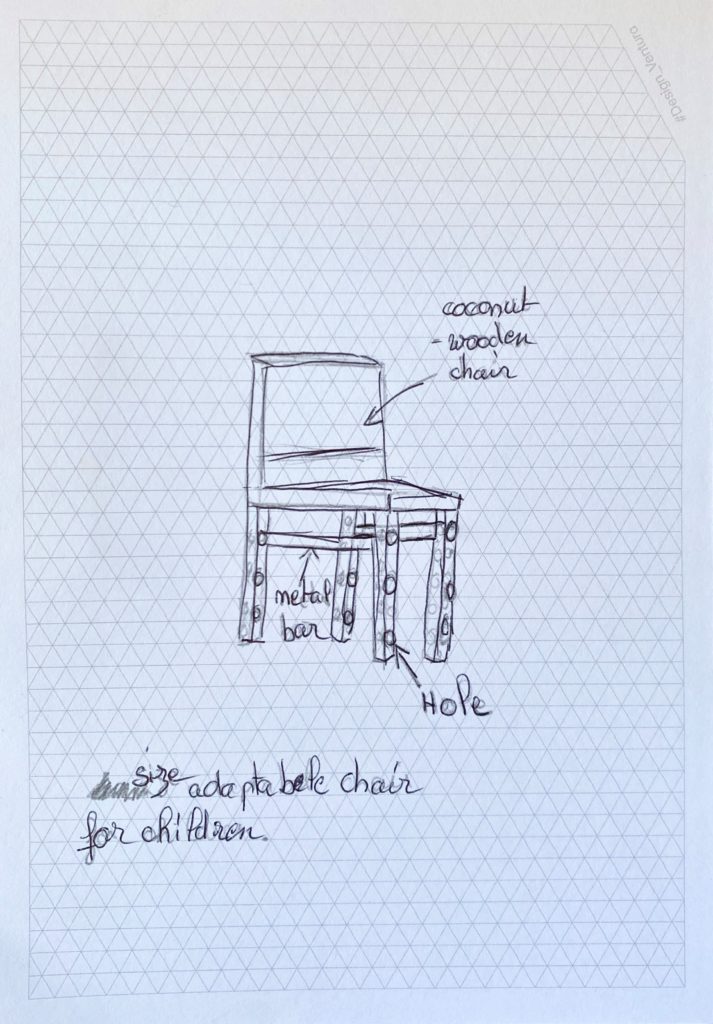 #Design_Venturo
coconut
-wooden
chair
metal
bar
Hole
size
adaptabele chair
for children.